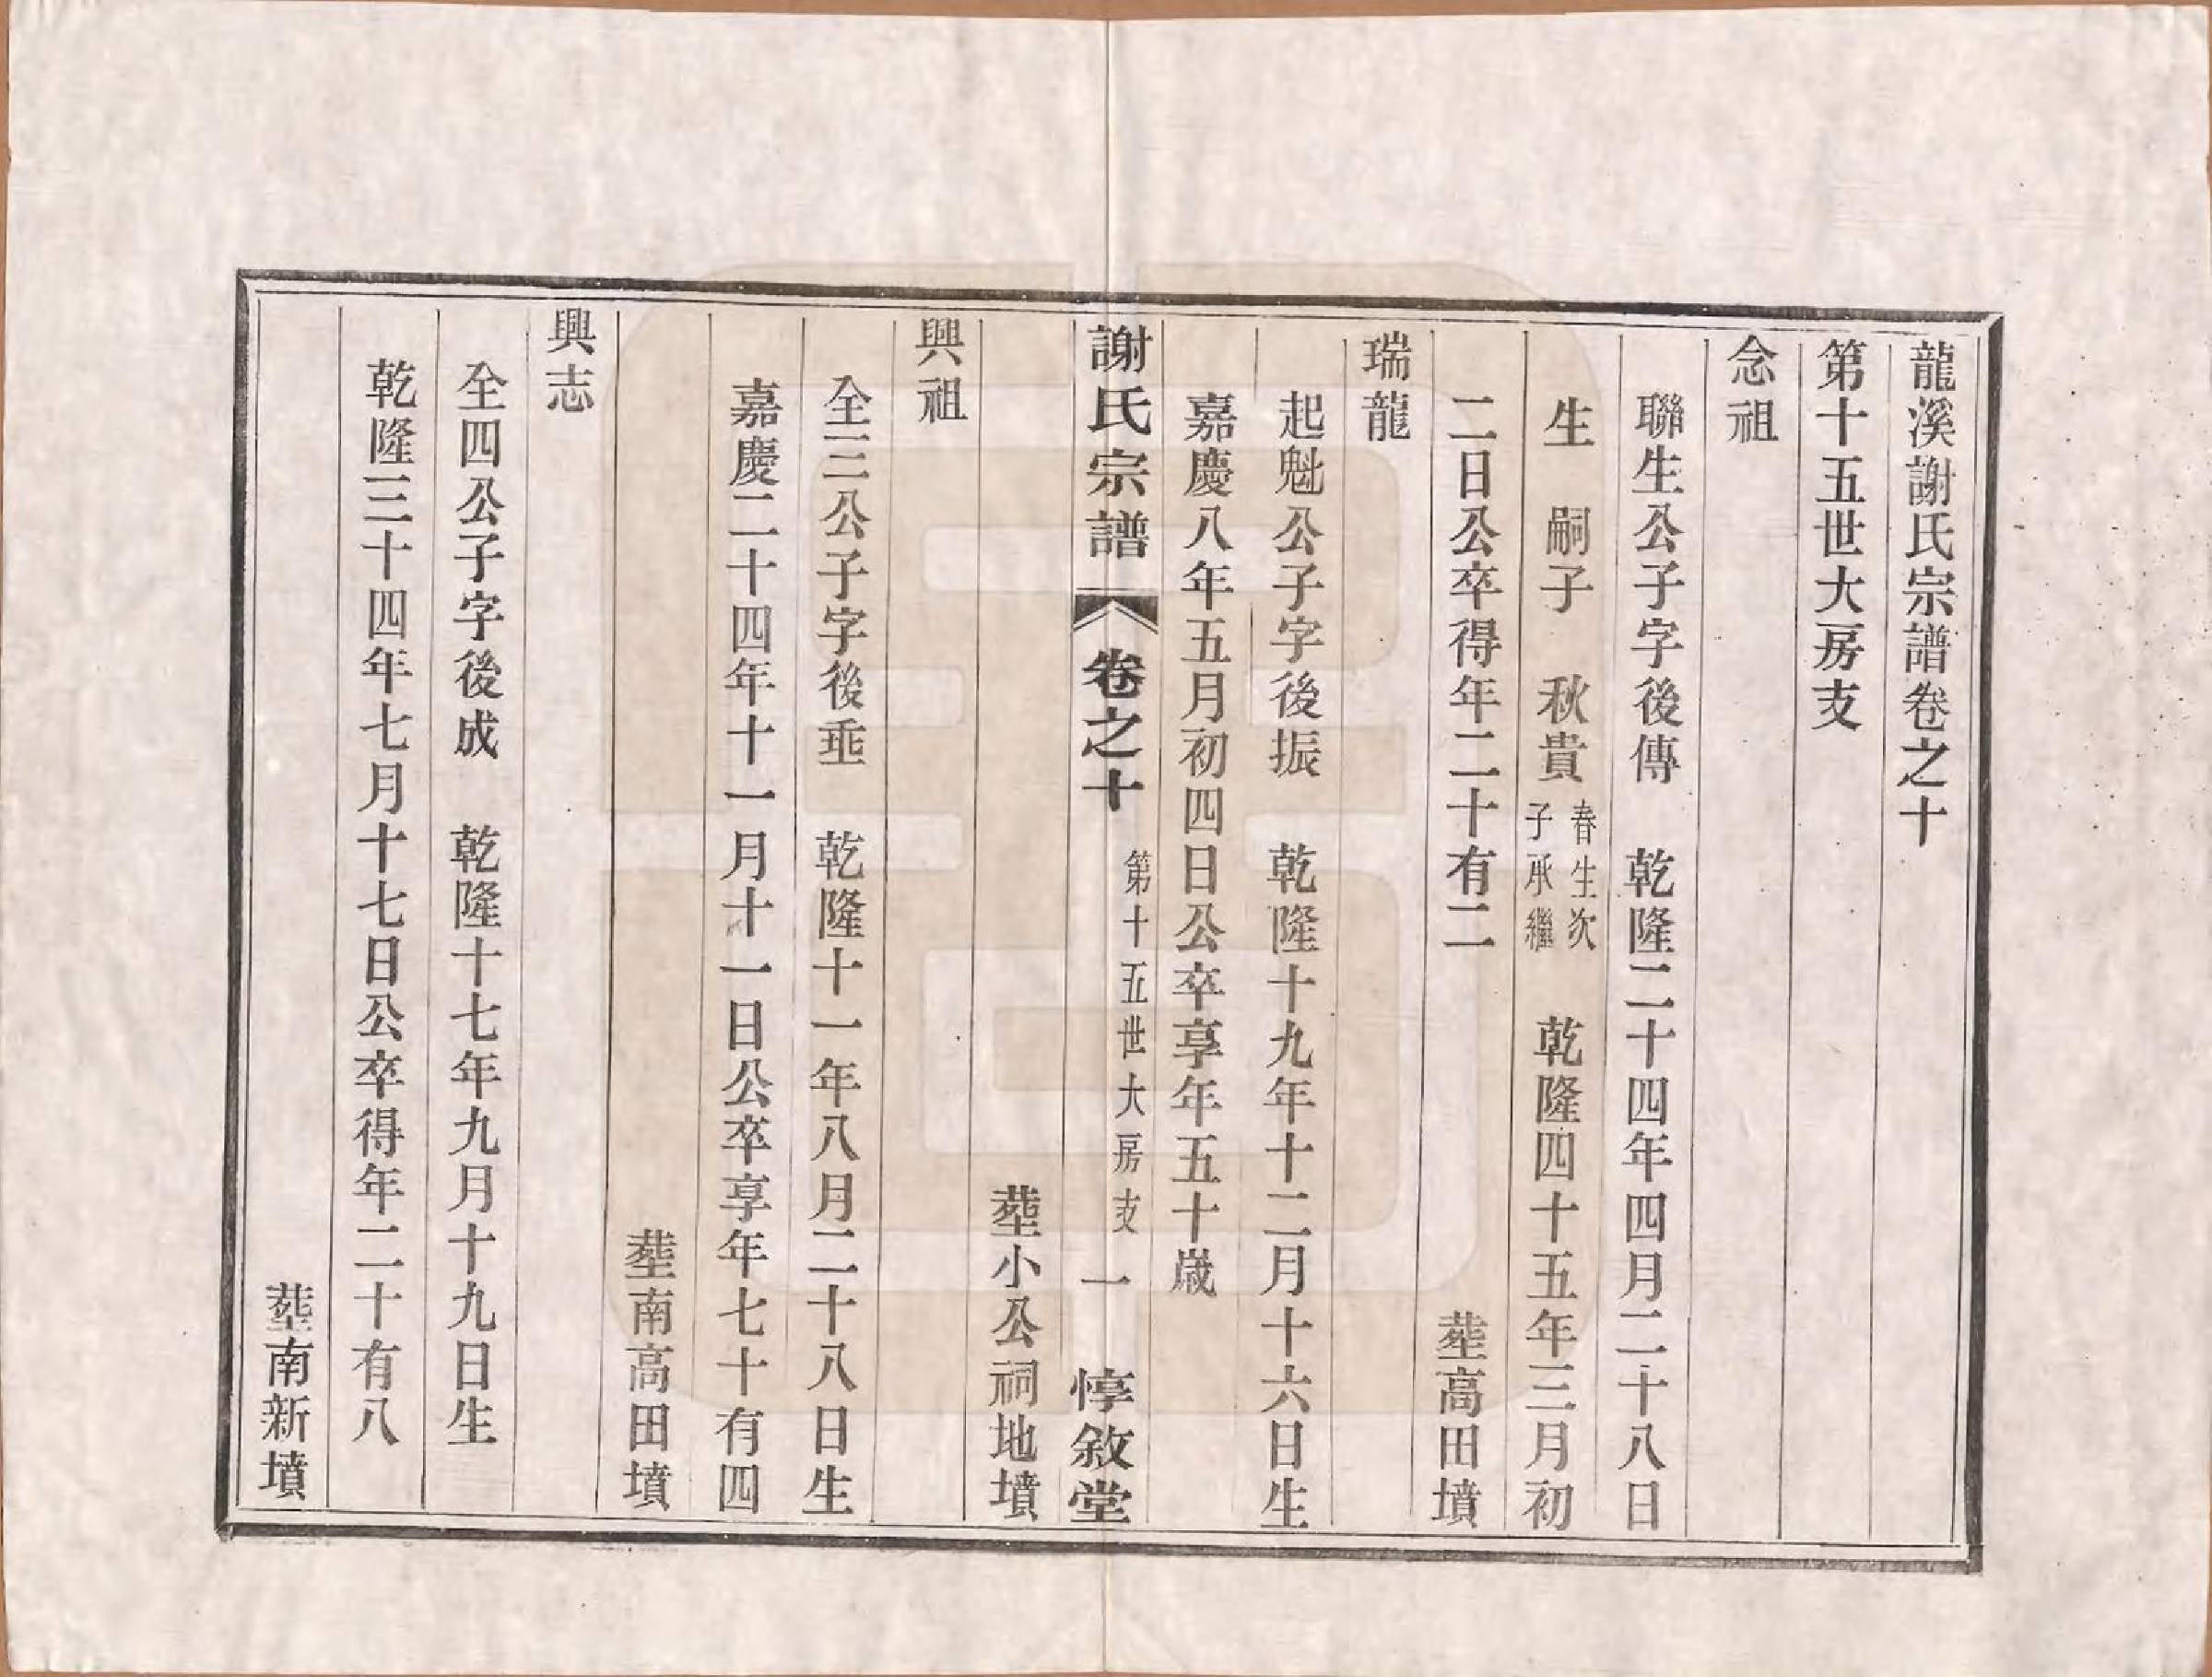 龍溪謝氏宗譜卷之十
第十五世大房支
念祖
聯生公子字後傳　乾隆二十四年四月二十八日
生　嗣子　秋貴春生次子承繼　乾隆四十五年三月初
二日公卒得年二十有二　塟高田墳
瑞龍
起魁公子字後振　乾隆十九年十二月十六日生
嘉慶八年五月初四日公卒享年五十歲
謝氏宗譜　卷之十　第十五世大房支　一　惇敘堂
塟小公祠地墳
興祖
全三公子字後垂　乾隆十一年八月二十八日生
嘉慶二十四年十一月十一日公卒享年七十有四
塟南高田墳
興志
全四公子字後成　乾隆十七年九月十九日生
乾隆三十四年七月十七日公卒得年二十有八
塟南新墳